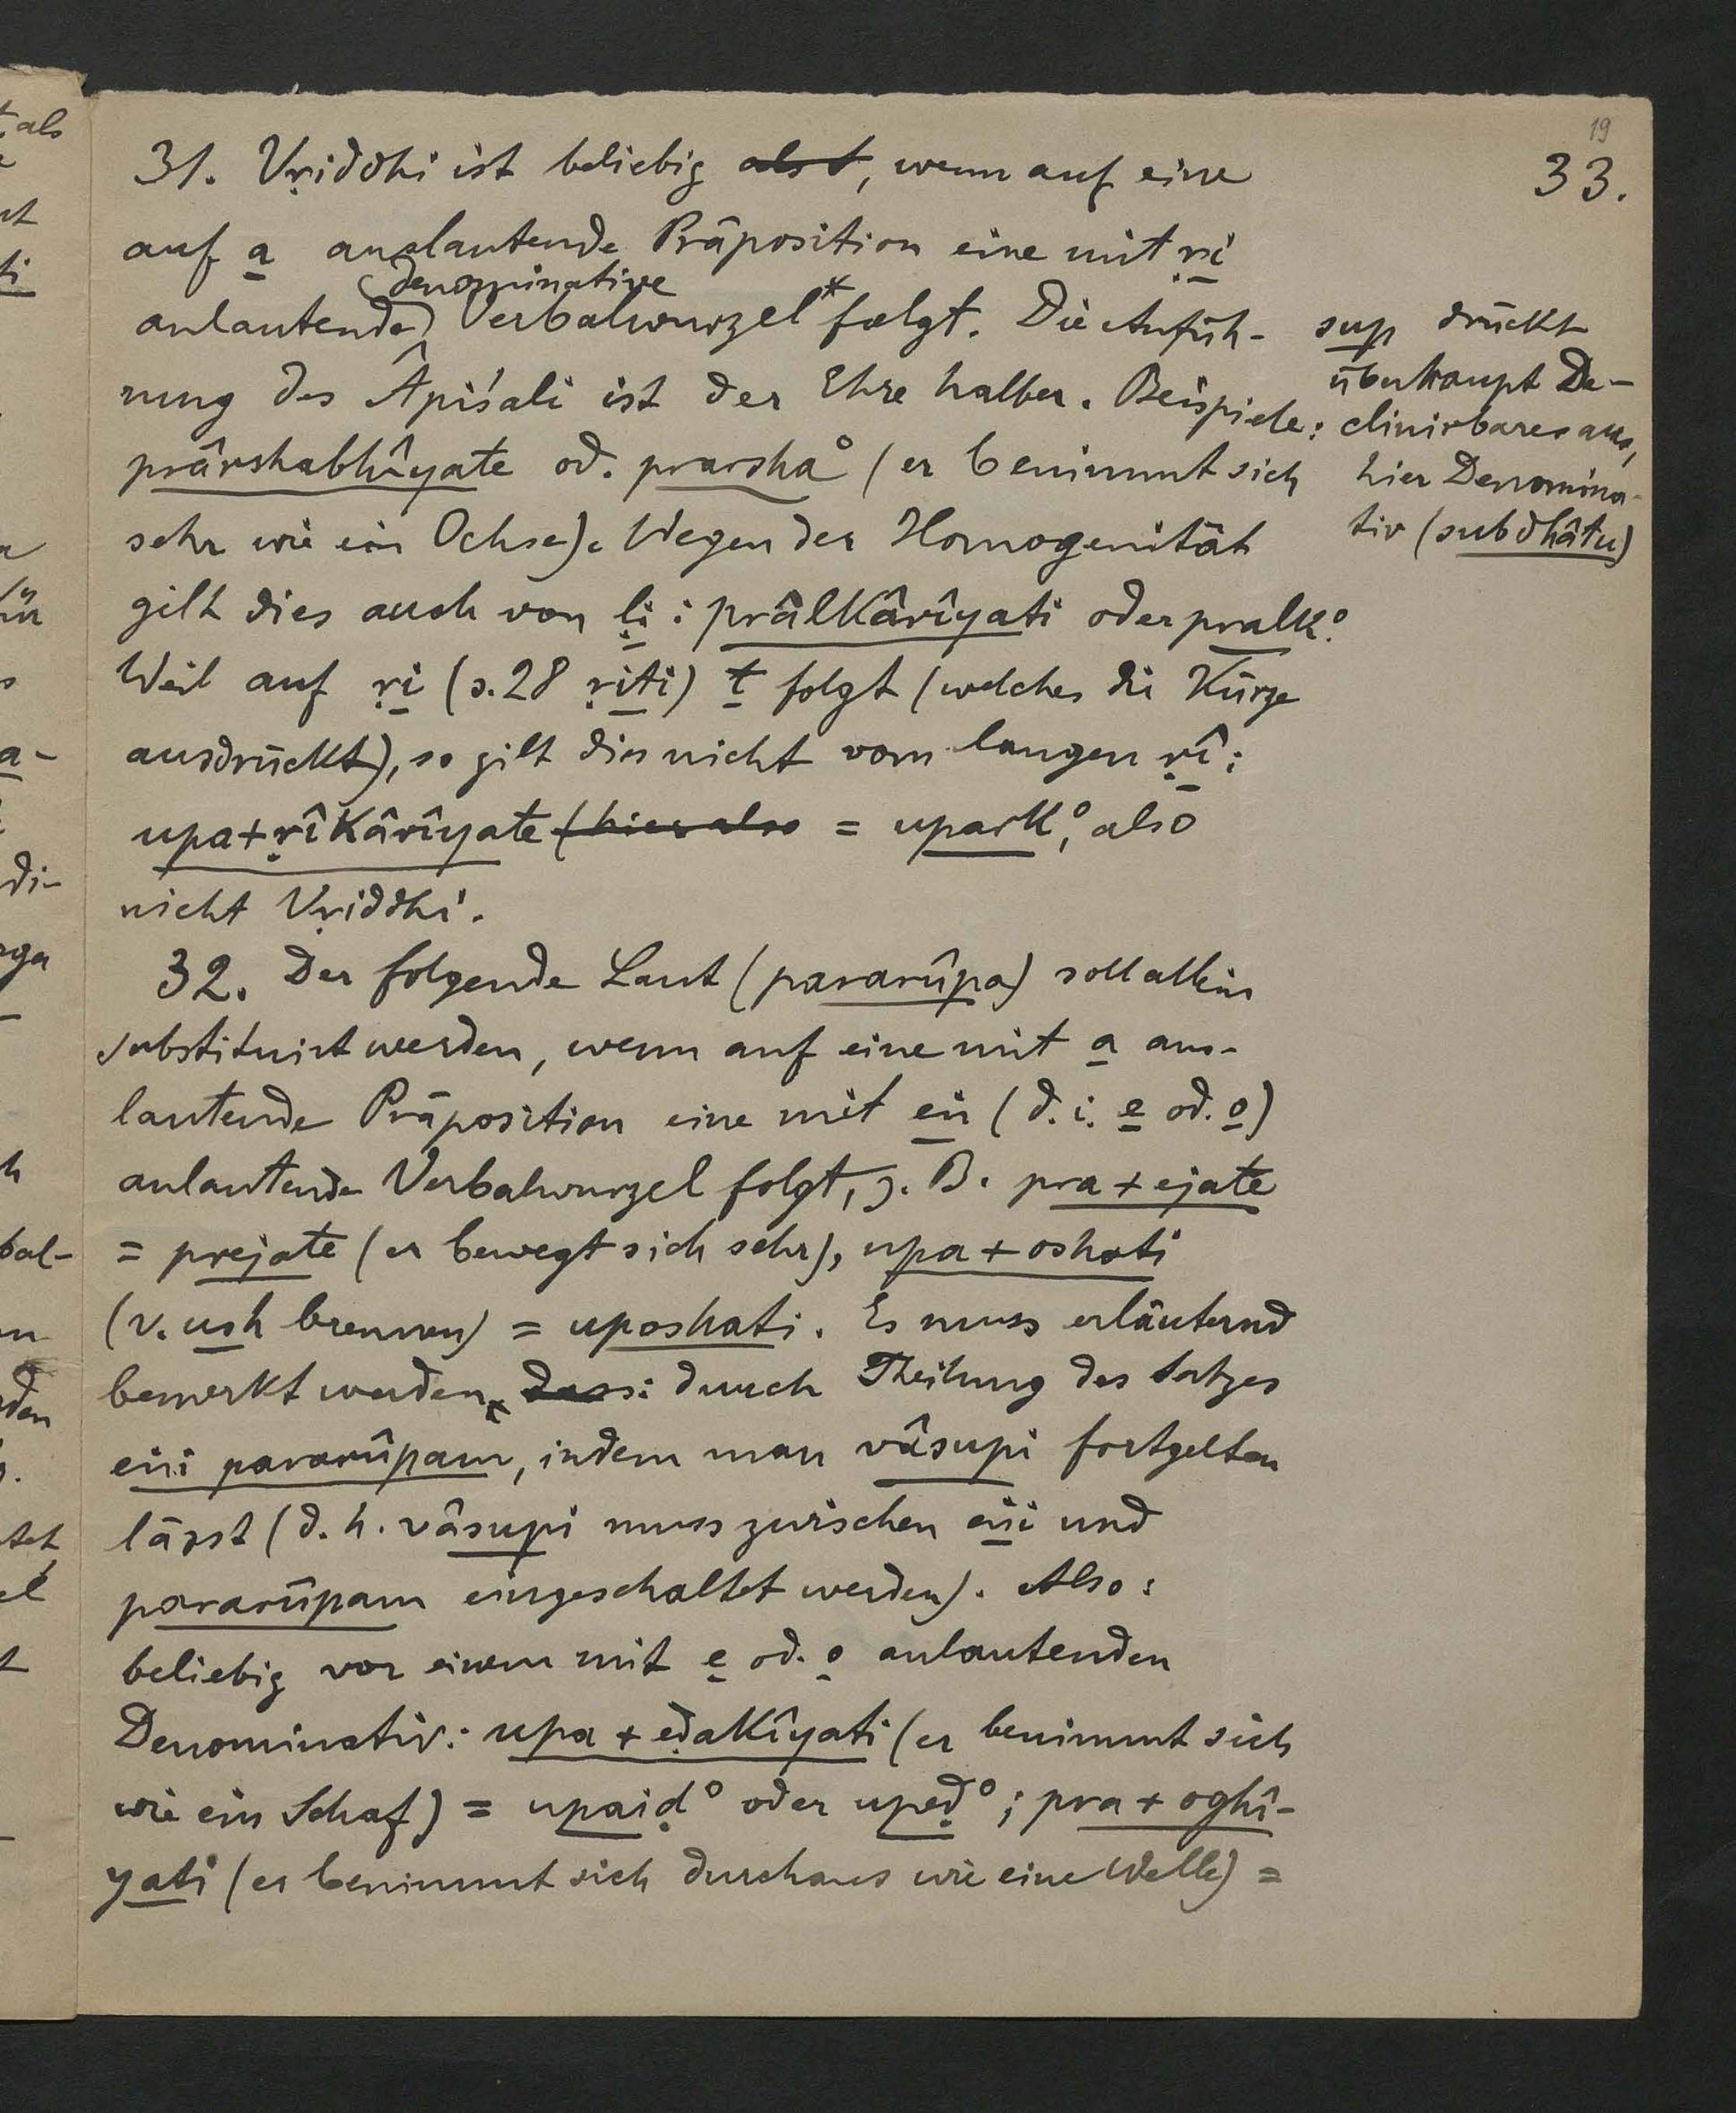 19
33.
31. Vṛiddhi ist beliebig also, wenn auf eine
auf a auslautende Präposition eine mit ṛi
denominative
anlautende Verbalwurzel* folgt. Die Anfüh-
rung des Âpiśali ist der Ehre halber. Beispiele:
prârshabhîyate od. prarsha° (er benimmt sich
sehr wie ein Ochse). Wegen der Homogenität
gilt dies auch von ḷi: prâlkârîyati oder pralk°.
Weil auf ṛi (s. 28 ṛiti) t folgt (welches die Kürze
ausdrückt), so gilt dies nicht vom langen ṛî:
upa+ṛîkârîyate (hier also = upark°, also
nicht Vṛiddhi.
sup drückt
überhaupt De-
clinirbares aus,
hier Denomina-
tiv (subdhâtu)
32. Der folgende Laut (pararûpa) soll allein
substituirt werden, wenn auf eine mit a aus-
lautende Präposition eine mit eṅ (d. i. e od. o)
anlautende Verbalwurzel folgt, z. B. pra + ejate
= prejate (er bewegt sich sehr), upa + oshati
(v. ush brennen) = uposhati. Es muss erläuternd
bemerkt werden, dass: durch Theilung des Satzes
eṅi pararûpam, indem man vâsupi fortgelten
lässt (d. h. vâsupi muss zwischen eṅi und
pararûpam eingeschaltet werden). Also:
beliebig vor einem mit e od. o anlautenden
Denominativ: upa + eḍakîyati (er benimmt sich
wie ein Schaf) = upaiḍ° oder upeḍ°; pra + oghî-
yati (er benimmt sich durchaus wie eine Welle) =